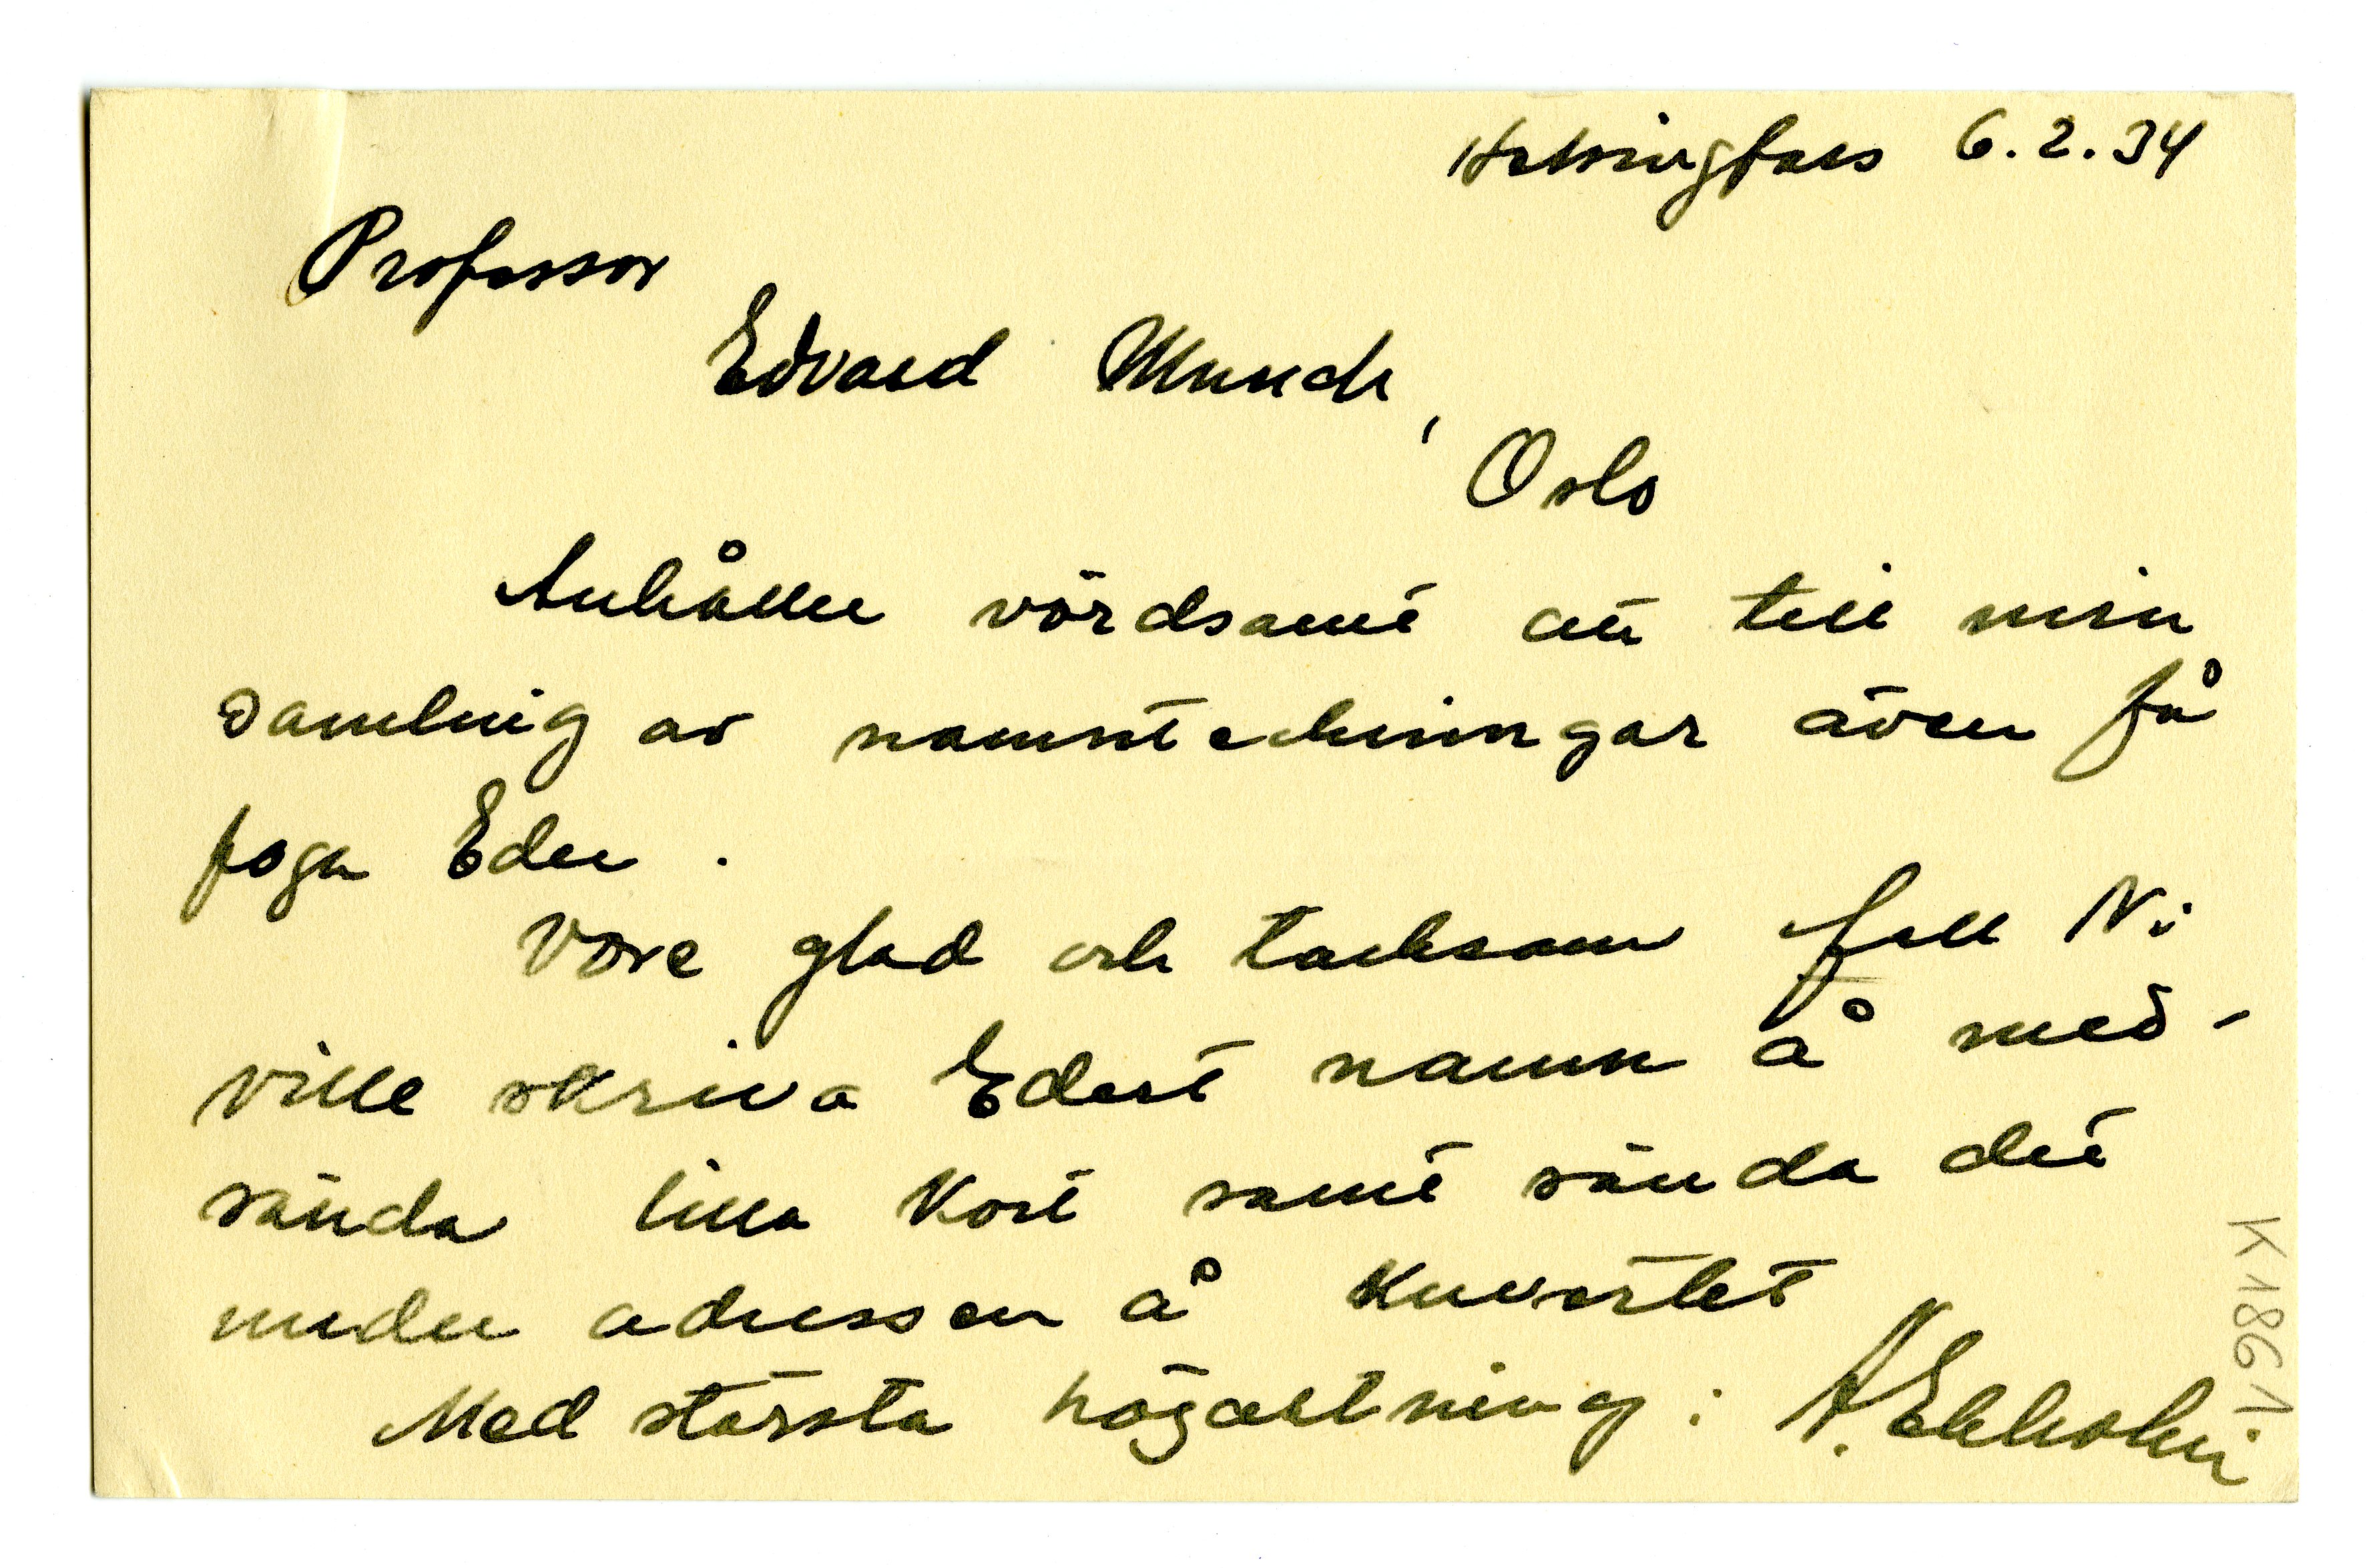 Helsingfors 6.2.34
Professor
Edvard Munch,
Oslo
Anhåller vördsamt att till min
samling av namnteckningar även få
foga Eder.
Vore glad och tacksam fall Ni
ville skriva Edert namn å med-
sända lilla kort samt sända det
under adressen å kuvertet
Med största högaktning: A. Ekholm
K 1861